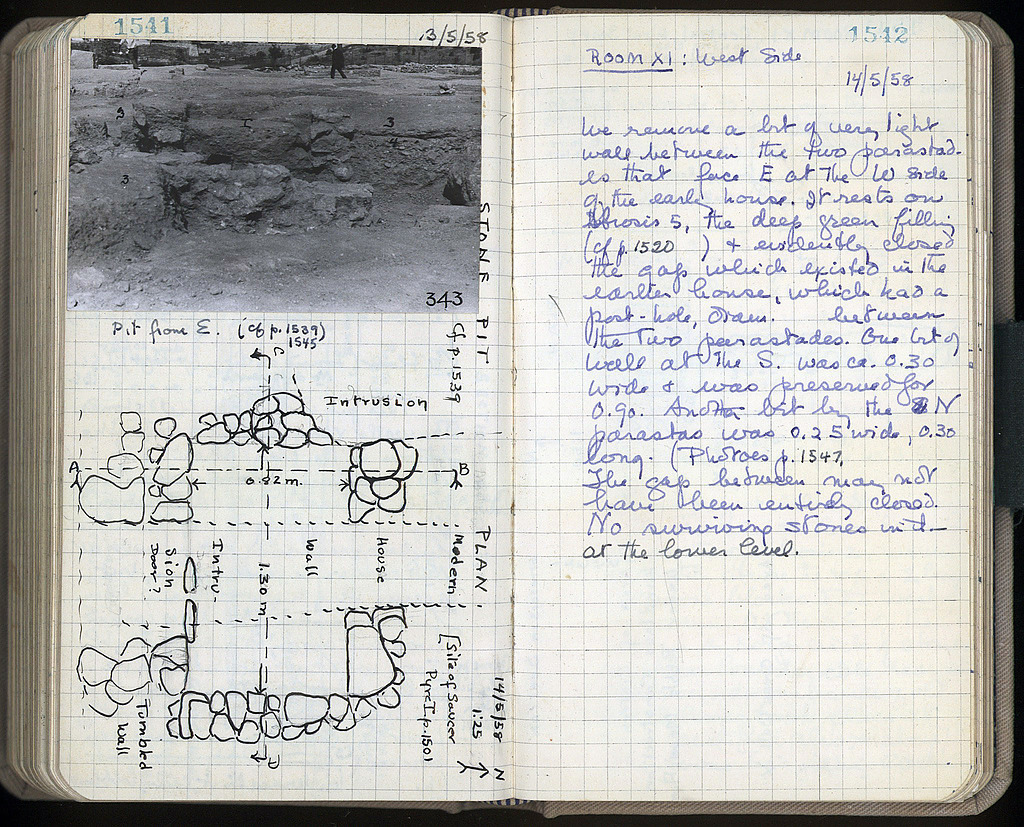 1541
13/5/58
3
1
3
3
343
Pit from E. (cf p. 1539)
1545
STONE PIT
Cf p. 1539
C
Intrusion
A
B
0.82 m.
PLAN
Modern
House
Wall
Intru-
sion
Door?
1.30 m
[Site of Saucer
Pyre I p. 1501
14/5/58
1:25
N
Tumbled
Wall
D
1542
ROOM XI : West Side
14/5/58
We remove a bit of very light
wall between the two parastad-
es that face E at the W side
of the early house. It rests on
Strosis 5, the deep green filling
(cf p. 1520 ) & evidently closed
the gap which existed in the
earlier house, which had a
post-hole, diam. between
the two parastades. One bit of
wall at the S. was ca. 0.30
wide & was preserved for
0.90. Another bit by the N
parastas was 0.25 wide, 0.30
long. (Photoes p. 1547,
The gap between may not
have been entirely closed.
No surviving stones in it
at the lower level.